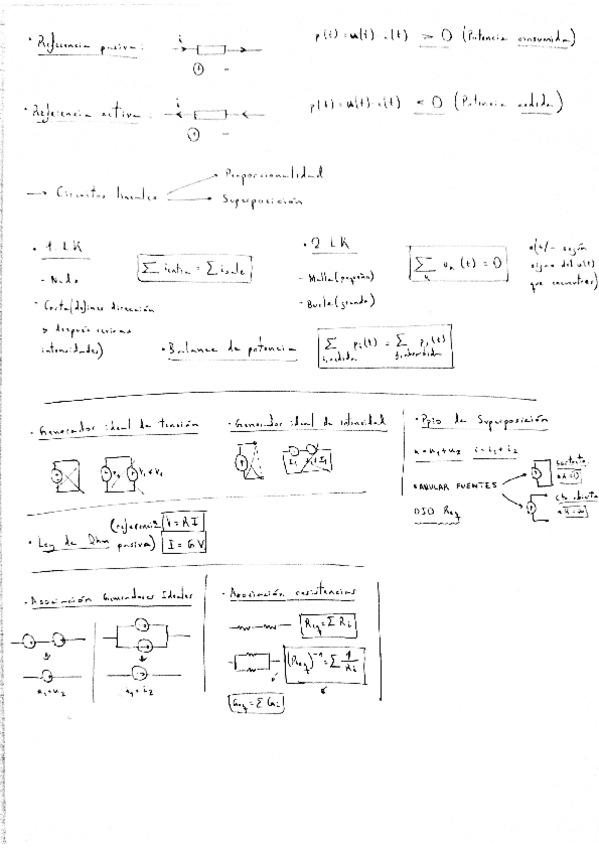 · Referencia pasiva:
i
+ -
p(t) = u(t) · i(t) > 0 (Potencia consumida)
· Referencia activa:
i
+ -
p(t) = u(t) · i(t) < 0 (Potencia cedida)
→ Circuitos lineales
Proporcionalidad
Superposición
· 1 LK
Σ ientra = Σ isale
- Nudo
- Corte (defines dirección
y después
intensidades)
· 2 LK
Σ uk (t) = 0
k
- Malla (pequeña)
- Bucle (grande)
(+/- según
signo del u(t)
que encuentres)
· Balance de potencia
Σ pi(t) = Σ pj(t)
i,cedida j,absorbida
· Generador ideal de tensión
· Generador ideal de intensidad
· Ppio de Superposición
u = u1 + u2 i = i1 + i2
ANULAR FUENTES
OJO Req
· Ley de Ohm (referencia
pasiva)
V = R I
I = G V
· Asociación Generadores Ideales
u1 + u2
i1 + i2
· Asociación resistencias
Req = Σ Ri
(Req)⁻¹ = Σ 1/Ri
Geq = Σ Gi